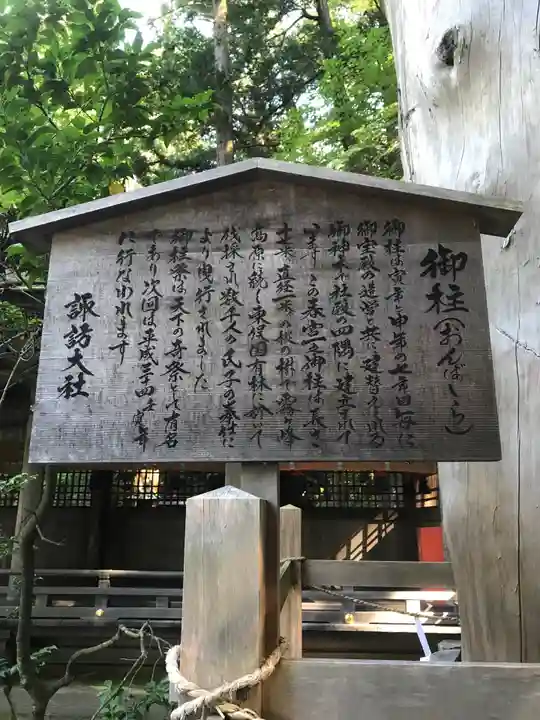 御柱(おんばしら)
御柱は寅年と申年の七年目毎に
御宝殿の造営と共に建替えられる
御神木で社殿の四隅に建立されて
います この春宮一之御柱は長さ
十七米 直径一米の樅の樹で霧ヶ峰
高原に続く東俣国有林に於いて
伐採され数千人の氏子の奉仕に
より曳行されました
御柱祭は天下の奇祭として有名
であり 次回は平成三十四年寅年
に行なわれます
諏訪大社